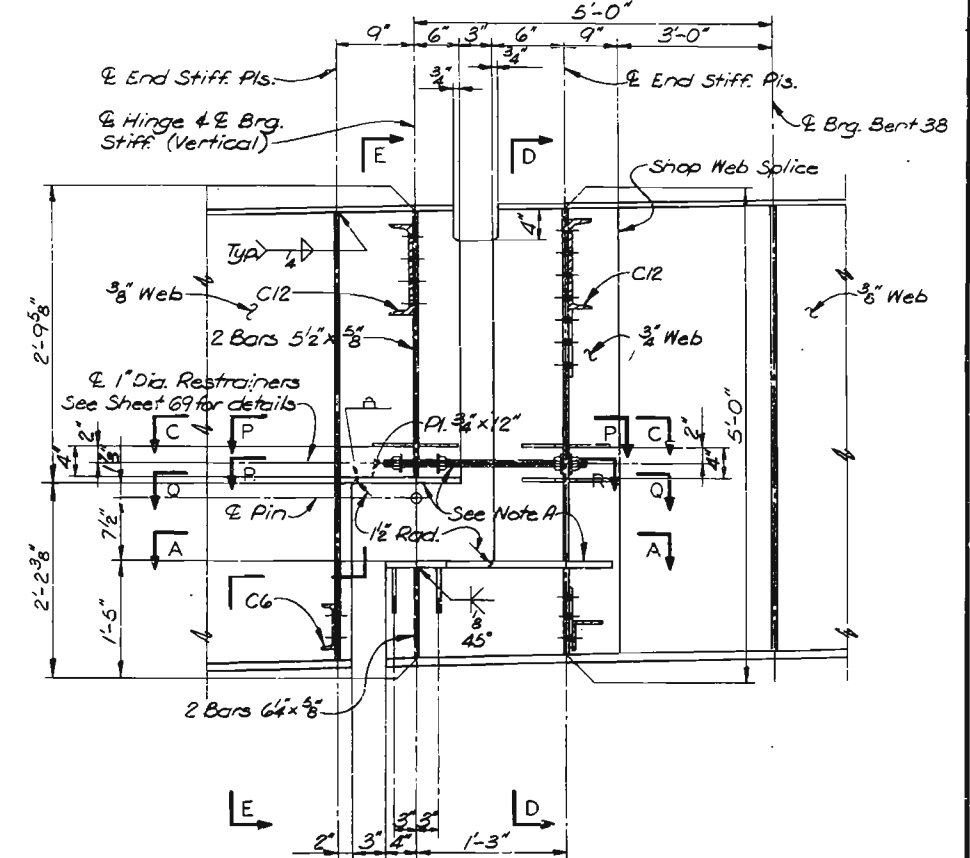 5'-0"
9" 6" 3" 6" 9" 3'-0"
3/4"
3/4"
℄ End Stiff. Pls.
℄ End Stiff. Pls.
℄ Hinge & ℄ Brg.
Stiff. (Vertical)
℄ Brg. Bent 38
E D
Shop Web Splice
4"
Typ. 1/4
C12
3/8" Web
C12
3/8" Web
2'-9 5/8"
2 Bars 5 1/2" x 5/8"
3/4" Web
℄ 1" Dia. Restrainers
See Sheet 69 for details
Pl. 3/4" x 12"
5'-0"
C P
P C
2"
4"
2"
4"
R
R
Q
Q
℄ Pin
See Note A
7 1/2"
1 1/2" Rad.
A
A
2'-2 3/8"
1'-5"
C6
1/8
45°
2 Bars 6 1/4" x 5/8"
E D
3" 3"
2" 3" 4" 1'-3"